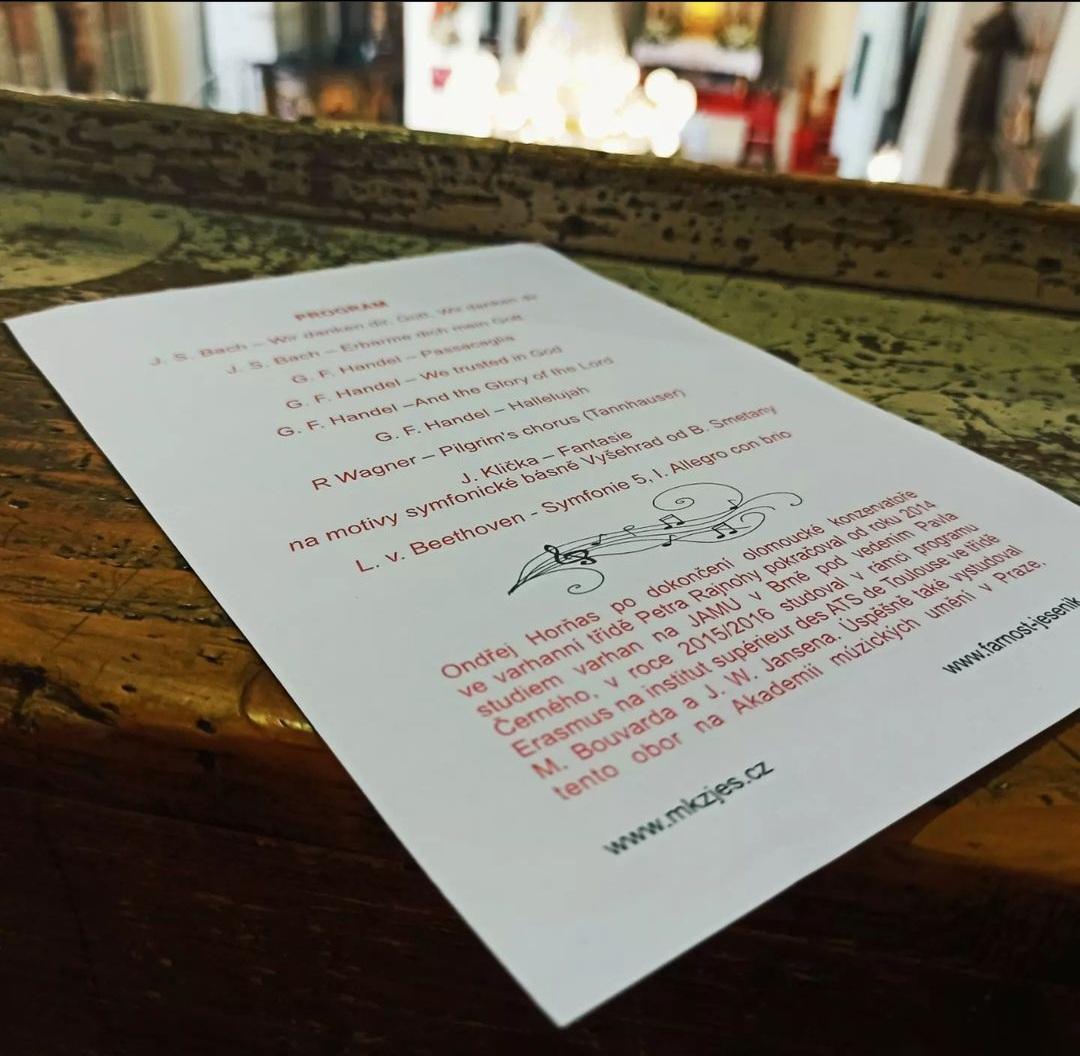 PROGRAM
J. S. Bach – Wir danken dir, Gott, Wir danken dir
J. S. Bach – Erbarme dich mein Gott
G. F. Handel – Passacaglia
G. F. Handel – We trusted in God
G. F. Handel –And the Glory of the Lord
G. F. Handel – Hallelujah
R Wagner – Pilgrim's chorus (Tannhauser)
J. Klička – Fantasie
na motivy symfonické básně Vyšehrad od B. Smetany
L. v. Beethoven - Symfonie 5, I. Allegro con brio
Ondřej Horňas po dokončení olomoucké konzervatoře
ve varhanní třídě Petra Rajnohy pokračoval od roku 2014
studiem varhan na JAMU v Brně pod vedením Pavla
Černého, v roce 2015/2016 studoval v rámci programu
Erasmus na institut supérieur des ATS de Toulouse ve třídě
M. Bouvarda a J. W. Jansena. Úspěšně také vystudoval
tento obor na Akademii múzických umění v Praze.
www.mkzjes.cz
www.farnost-jesenik